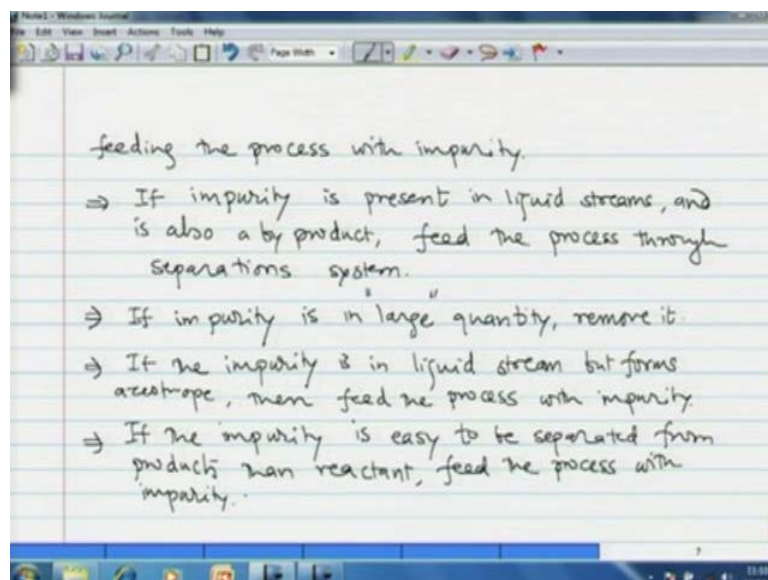 Note1 - Windows Journal
File Edit View Insert Actions Tools Help
Page Width
feeding the process with impurity.
⇒ If impurity is present in liquid streams, and
is also a by product, feed the process through
separations system.
⇒ If impurity is in "large" quantity, remove it.
⇒ If the impurity is in liquid stream but forms
azeotrope, then feed the process with impurity.
⇒ If the impurity is easy to be separated from
product than reactant, feed the process with
impurity.
7